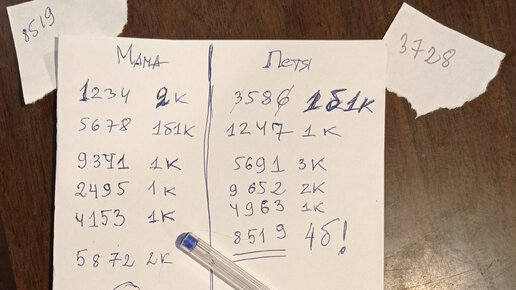 8519
3728
Мама
1234 2к
5678 1б1к
9341 1к
2495 1к
4153 1к
5872 2к
Петя
3586 1б1к
1247 1к
5691 3к
9652 2к
4963 1к
8519 4б!